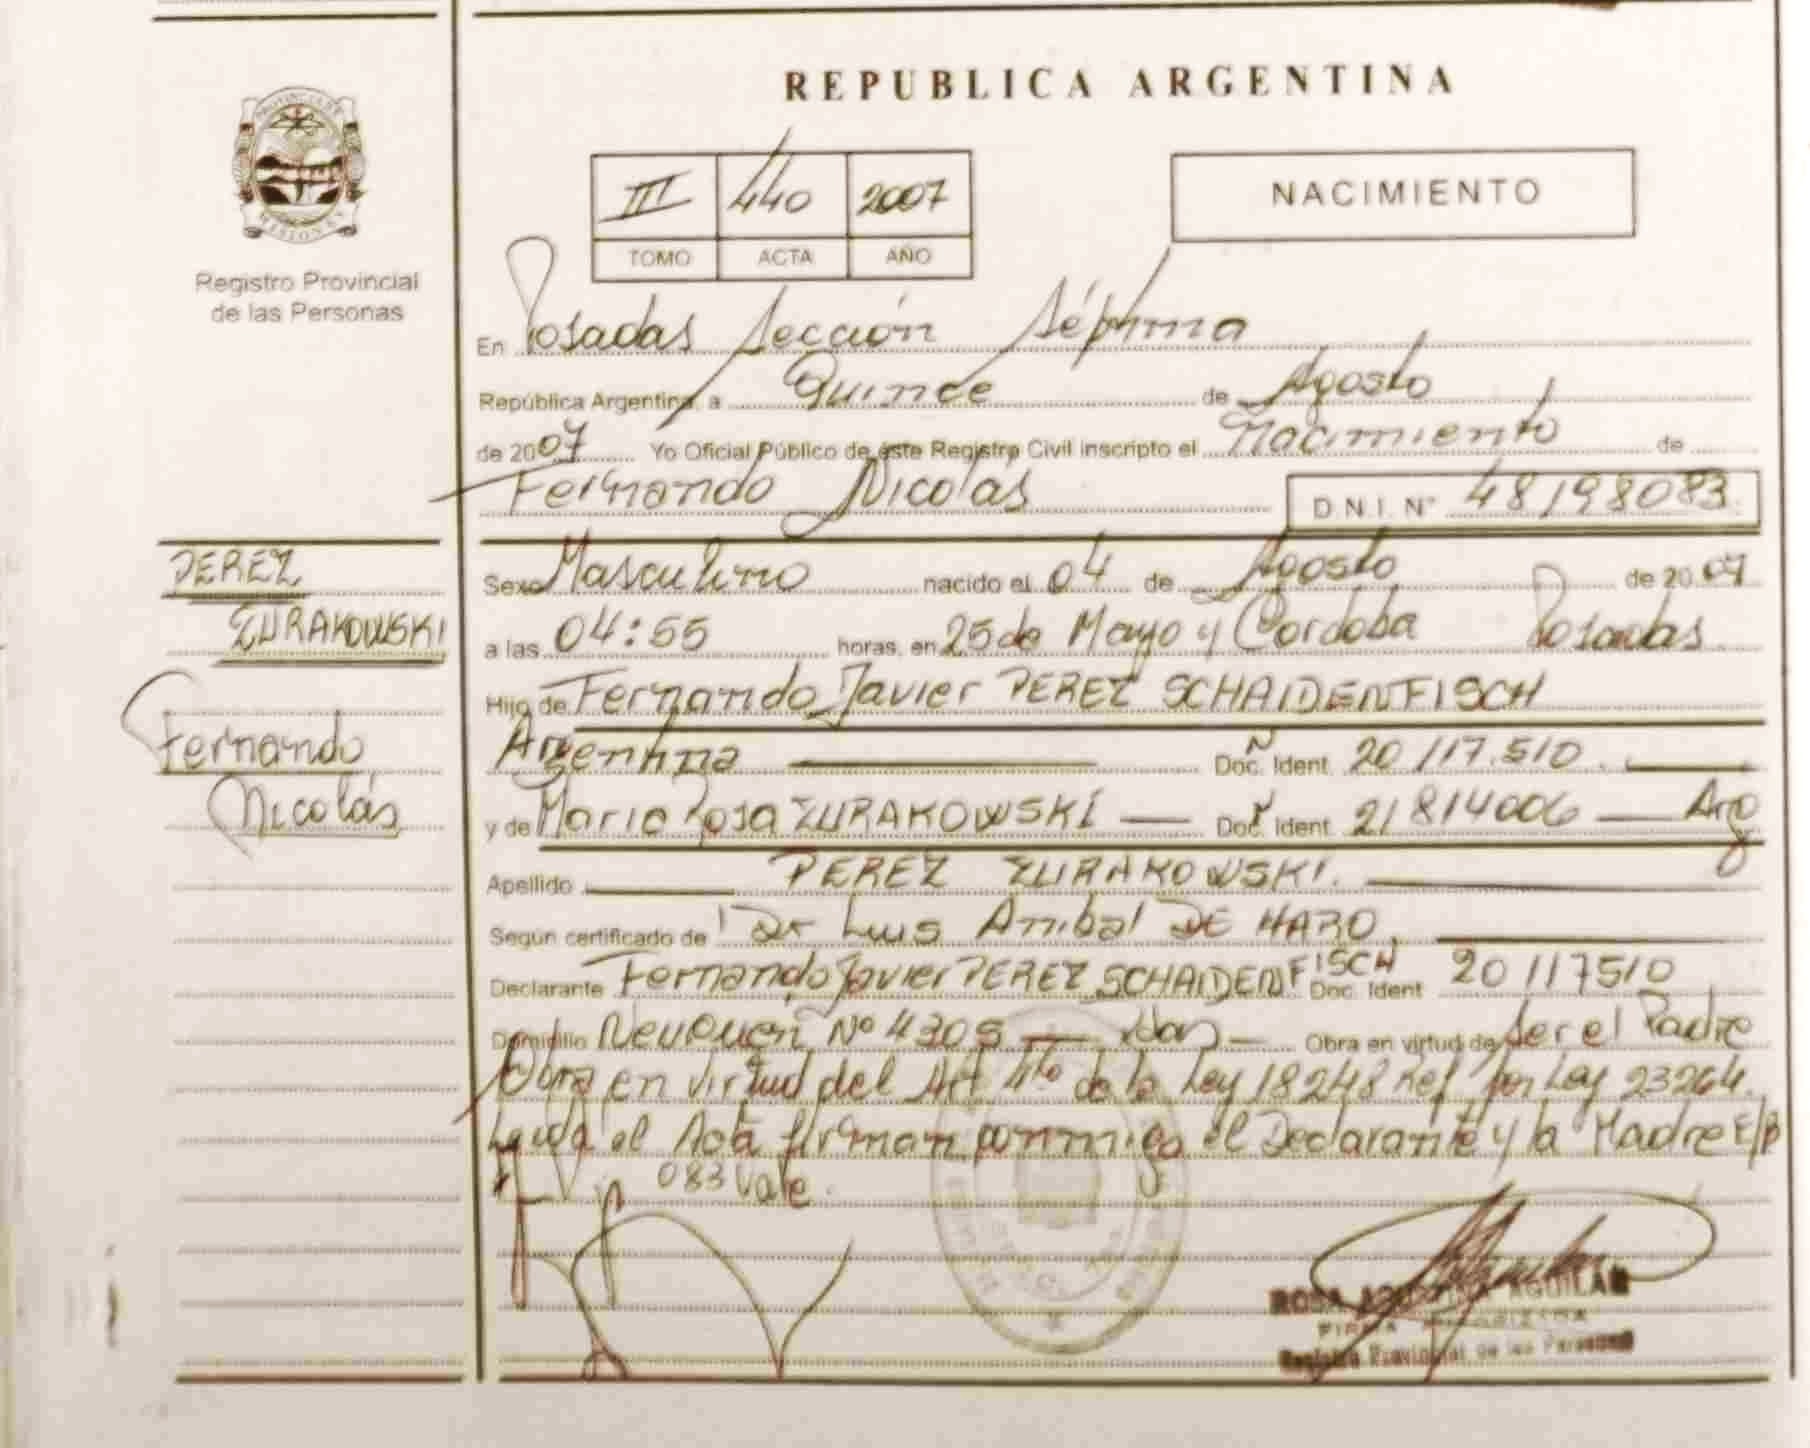 REPUBLICA ARGENTINA
III 440 2007
TOMO ACTA AÑO
NACIMIENTO
MISIONES
Registro Provincial
de las Personas
En Posadas Sección Séptima
República Argentina, a Quince de Agosto
de 2007 Yo Oficial Público de éste Registro Civil inscripto el Nacimiento de
Fernando Nicolás D.N.I. N° 48198083
PEREZ
ZURAKOWSKI
Fernando
Nicolás
Sexo Masculino nacido el 04 de Agosto de 2007
a las 04:55 horas, en 25 de Mayo y Cordoba Posadas
Hijo de Fernando Javier PEREZ SCHAIDENFISCH
Argentina Doc. Ident. 20117.510
y de Maria Rosa ZURAKOWSKI Doc. Ident. 21814006 Arg
Apellido PEREZ ZURAKOWSKI.
Según certificado de Dr Luis Anibal DE HARO
Declarante Fernando Javier PEREZ SCHAIDENFISCH Doc. Ident 20117510
Domicilio Neuquen Nº 4305 Obra en virtud de ser el Padre
Obra en virtud del Art 4to de la Ley 18248 Ref por Ley 23264.
Leida el Acta firman conmigo el Declarante y la Madre E/R
083 Vale.
ROSA AGUILAR
Registro Provincial de las Personas